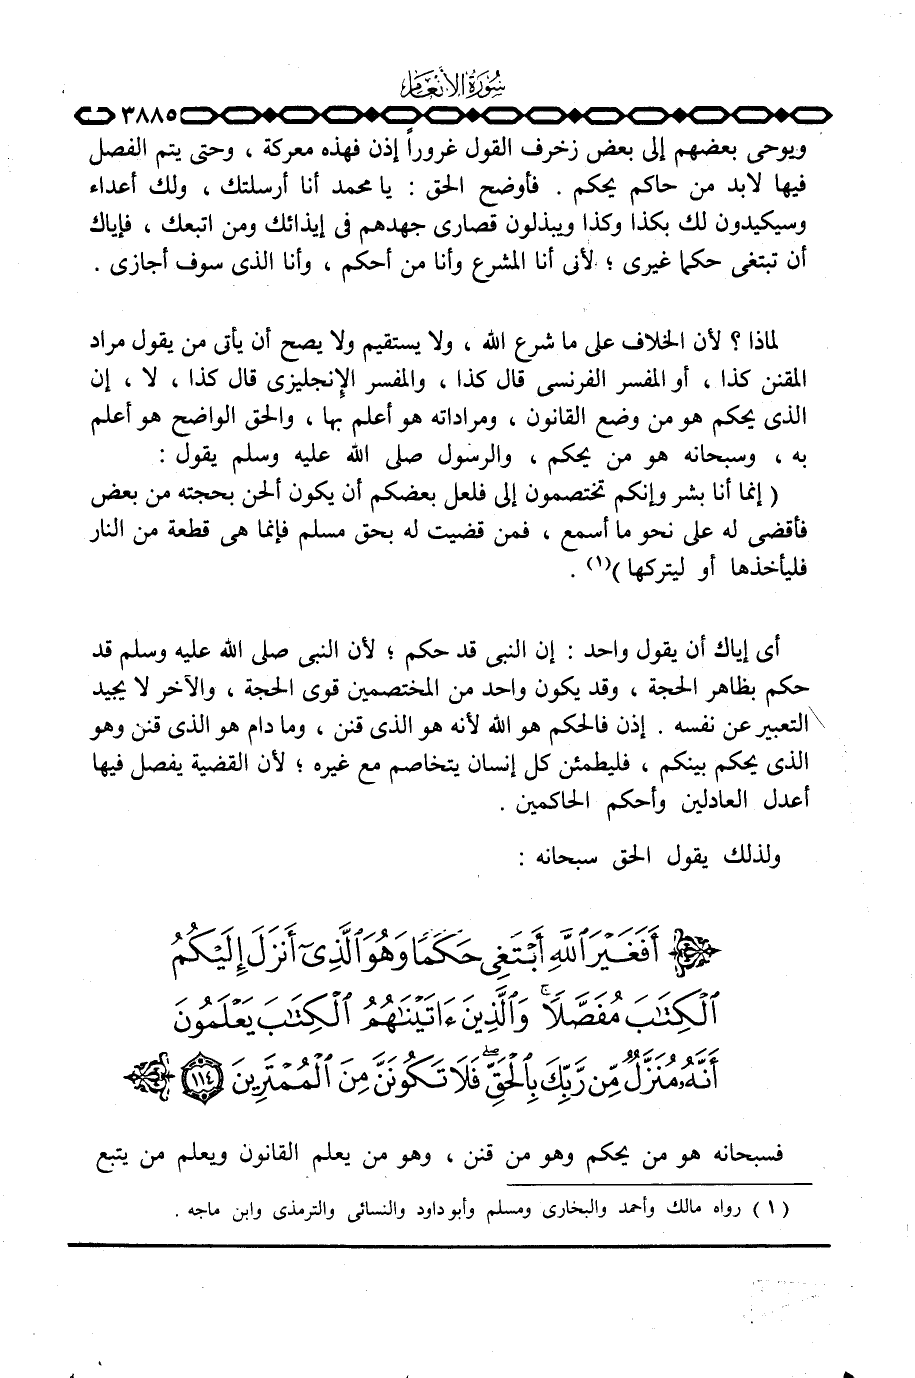 سورة الأنعام
٣٨٨٥
ويوحى بعضهم إلى بعض زخرف القول غروراً إذن فهذه معركة ، وحتى يتم الفصل
فيها لابد من حاكم يحكم . فأوضح الحق : يا محمد أنا أرسلتك ، ولك أعداء
وسيكيدون لك بكذا وكذا ويبذلون قصارى جهدهم فى إيذائك ومن اتبعك ، فإياك
أن تبتغى حكما غيرى ؛ لأنى أنا المشرع وأنا من أحكم ، وأنا الذى سوف أجازى .
لماذا ؟ لأن الخلاف على ما شرع الله ، ولا يستقيم ولا يصح أن يأتى من يقول مراد
المقنن كذا ، أو المفسر الفرنسى قال كذا ، والمفسر الإنجليزى قال كذا ، لا ، إن
الذى يحكم هو من وضع القانون ، ومراداته هو أعلم بها ، والحق الواضح هو أعلم
به ، وسبحانه هو من يحكم ، والرسول صلى الله عليه وسلم يقول :
( إنما أنا بشر وإنكم تختصمون إلى فلعل بعضكم أن يكون ألحن بحجته من بعض
فأقضى له على نحو ما أسمع ، فمن قضيت له بحق مسلم فإنما هى قطعة من النار
فليأخذها أو ليتركها )(١) .
أى إياك أن يقول واحد : إن النبى قد حكم ؛ لأن النبى صلى الله عليه وسلم قد
حكم بظاهر الحجة ، وقد يكون واحد من المختصمين قوى الحجة ، والآخر لا يجيد
التعبير عن نفسه . إذن فالحكم هو الله لأنه هو الذى قنن ، وما دام هو الذى قنن وهو
الذى يحكم بينكم ، فليطمئن كل إنسان يتخاصم مع غيره ؛ لأن القضية يفصل فيها
أعدل العادلين وأحكم الحاكمين .
ولذلك يقول الحق سبحانه :
أَفَغَيْرَ ٱللَّهِ أَبْتَغِى حَكَمًا وَهُوَ ٱلَّذِىٓ أَنزَلَ إِلَيْكُمُ
ٱلْكِتَٰبَ مُفَصَّلًا ۚ وَٱلَّذِينَ ءَاتَيْنَٰهُمُ ٱلْكِتَٰبَ يَعْلَمُونَ
أَنَّهُۥ مُنَزَّلٌ مِّن رَّبِّكَ بِٱلْحَقِّ ۖ فَلَا تَكُونَنَّ مِنَ ٱلْمُمْتَرِينَ ١١٤
فسبحانه هو من يحكم وهو من قنن ، وهو من يعلم القانون ويعلم من يتبع
( ١ ) رواه مالك وأحمد والبخارى ومسلم وأبو داود والنسائى والترمذى وابن ماجه .